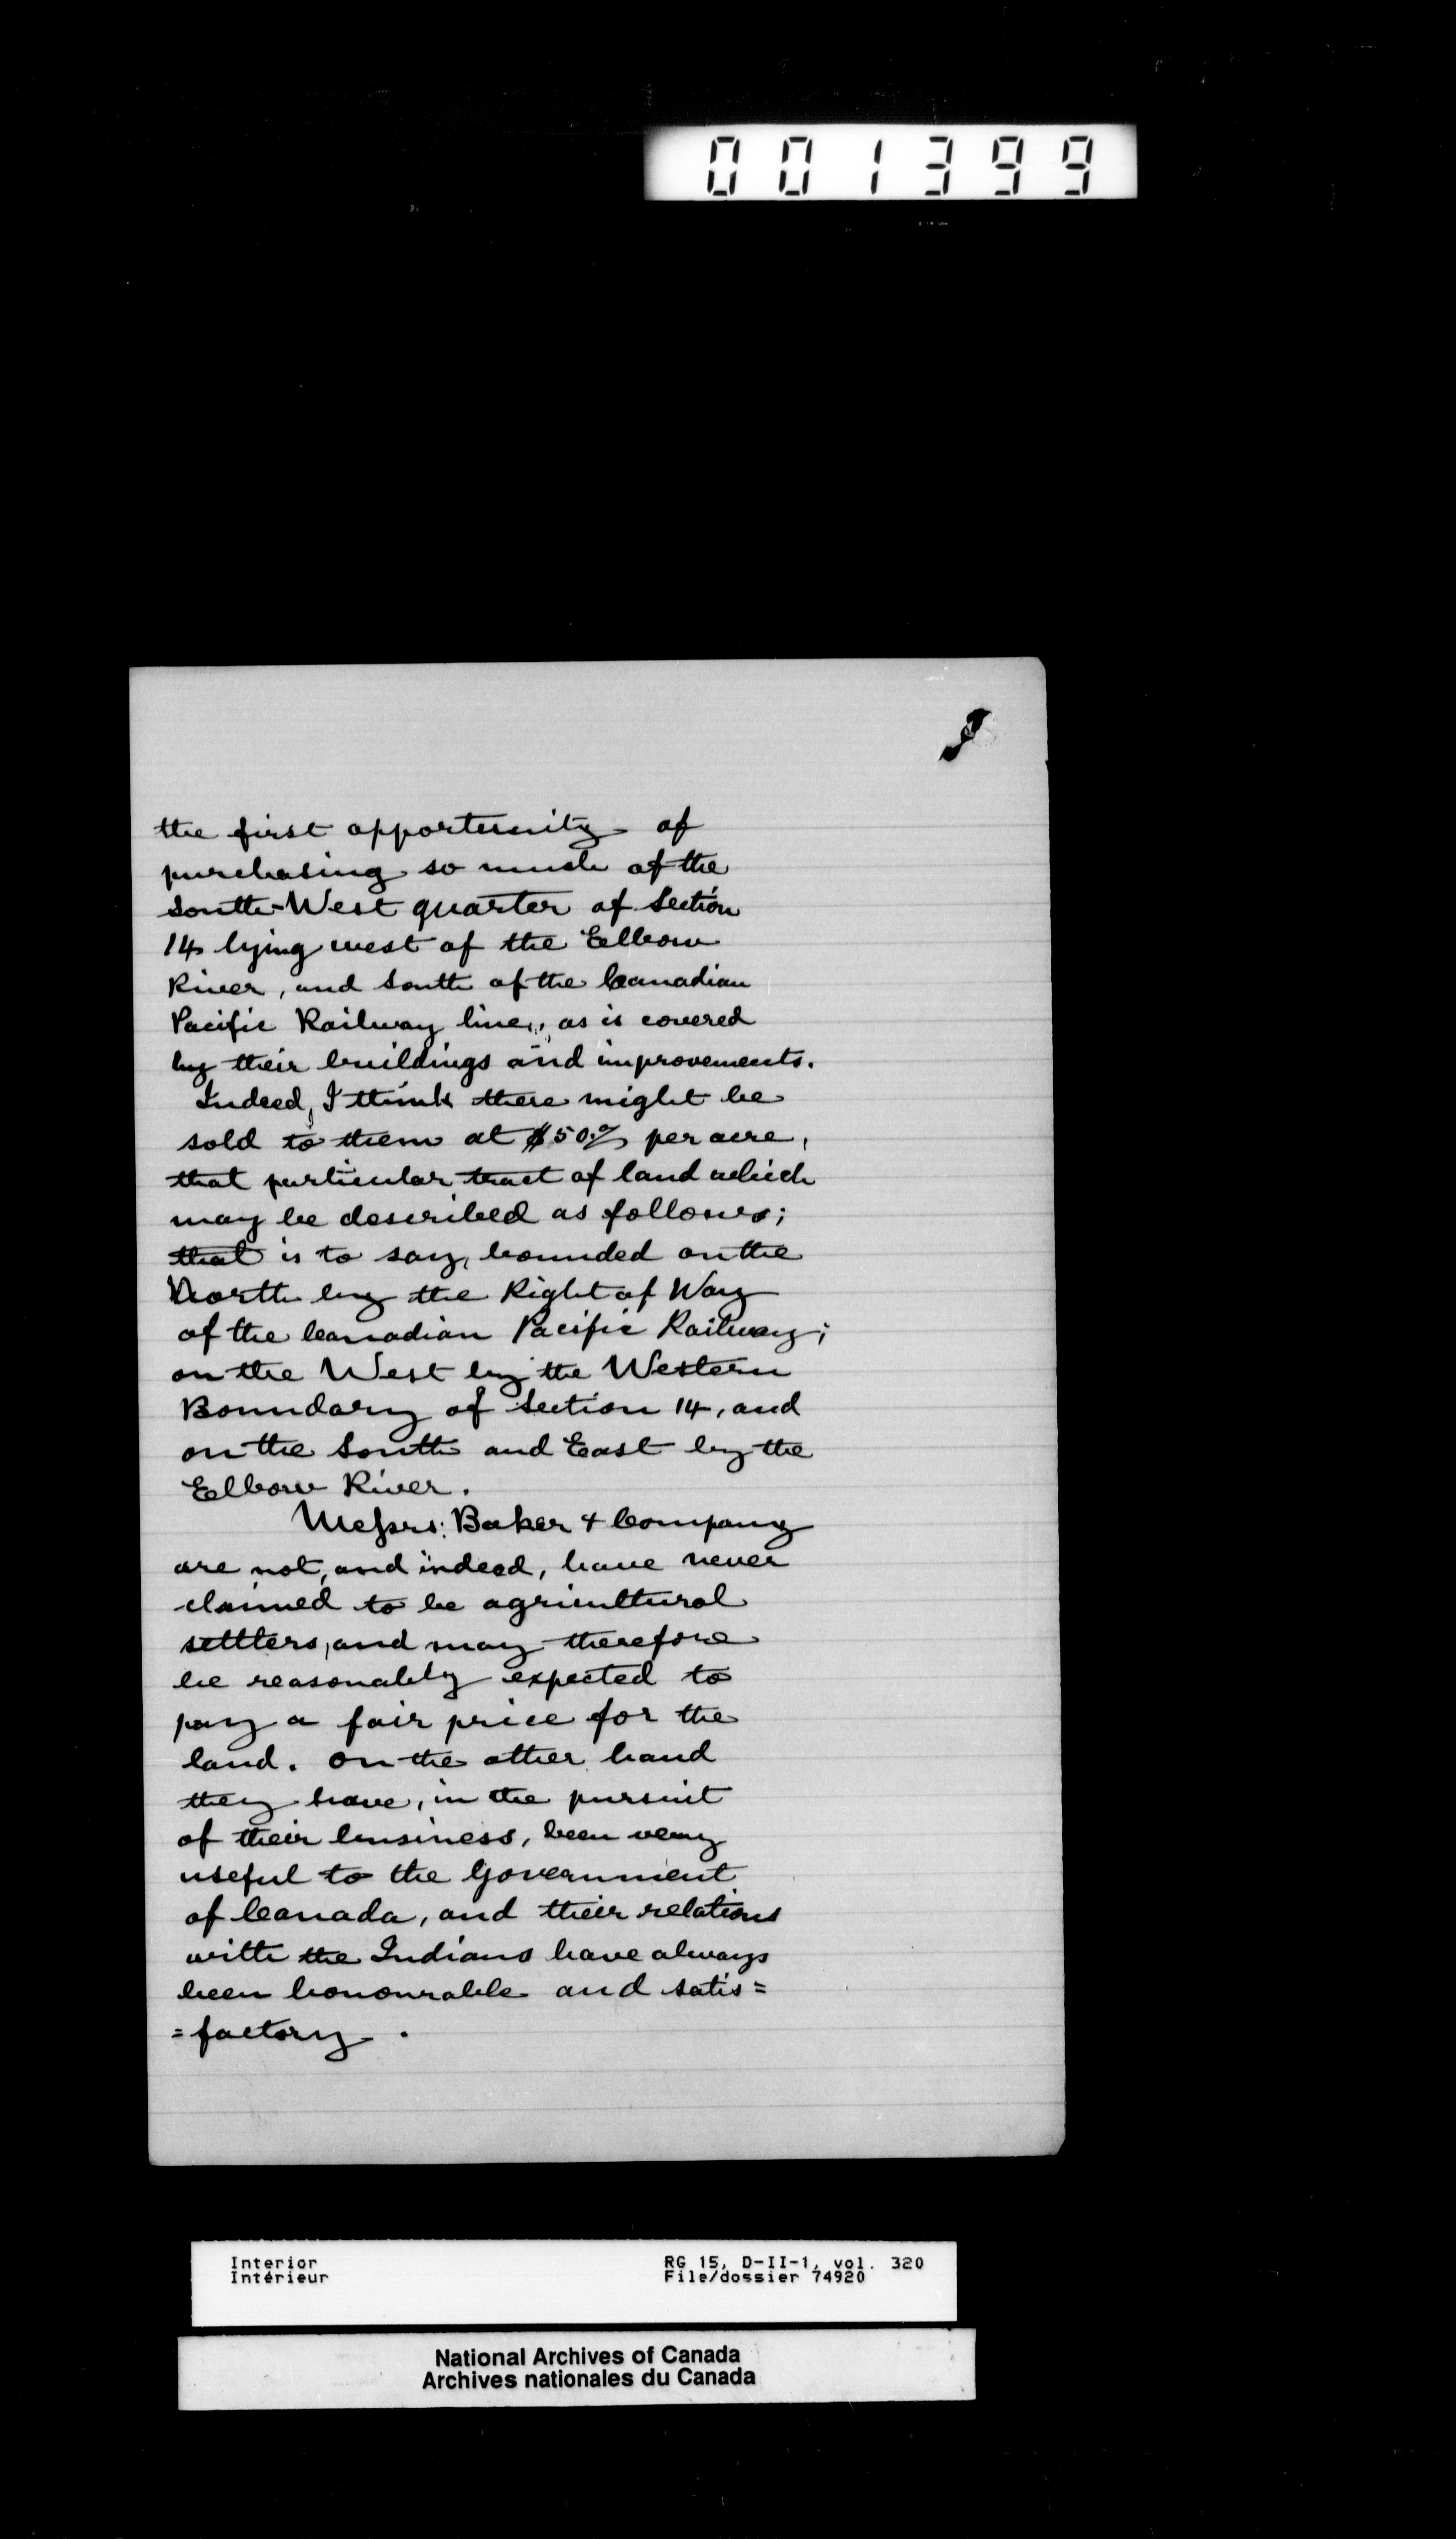 001399
the first opportunity of
purchasing so much of the
South-West quarter of Section
14 lying west of the Elbow
River, and South of the Canadian
Pacific Railway line, as is covered
by their buildings and improvements.
Indeed, I think there might be
sold to them at $50.00 per acre,
that particular tract of land which
may be described as follows;
that is to say, bounded on the
North by the Right of Way
of the Canadian Pacific Railway;
on the West by the Western
Boundary of Section 14, and
on the South and East by the
Elbow River.
Messrs: Baker & Company
are not, and indeed, have never
claimed to be agricultural
settlers, and may therefore
be reasonably expected to
pay a fair price for the
land. On the other hand
they have, in the pursuit
of their business, been very
useful to the Government
of Canada, and their relations
with the Indians have always
been honourable and satis=
=factory.
Interior RG 15, D-II-1, vol. 320
Intérieur File/dossier 74920
National Archives of Canada
Archives nationales du Canada